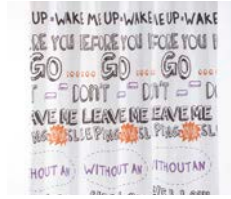 UP • WAKE ME UP • WAKE ME UP • WAKE
RE YOU BEFORE YOU BEFORE YOU
GO ...... GO ...... GO
T – – DON'T – – DON'T
EAVE ME LEAVE ME LEAVE ME
SLEEPING SL
HOUT AN WITHOUT AN ITHOUT AN